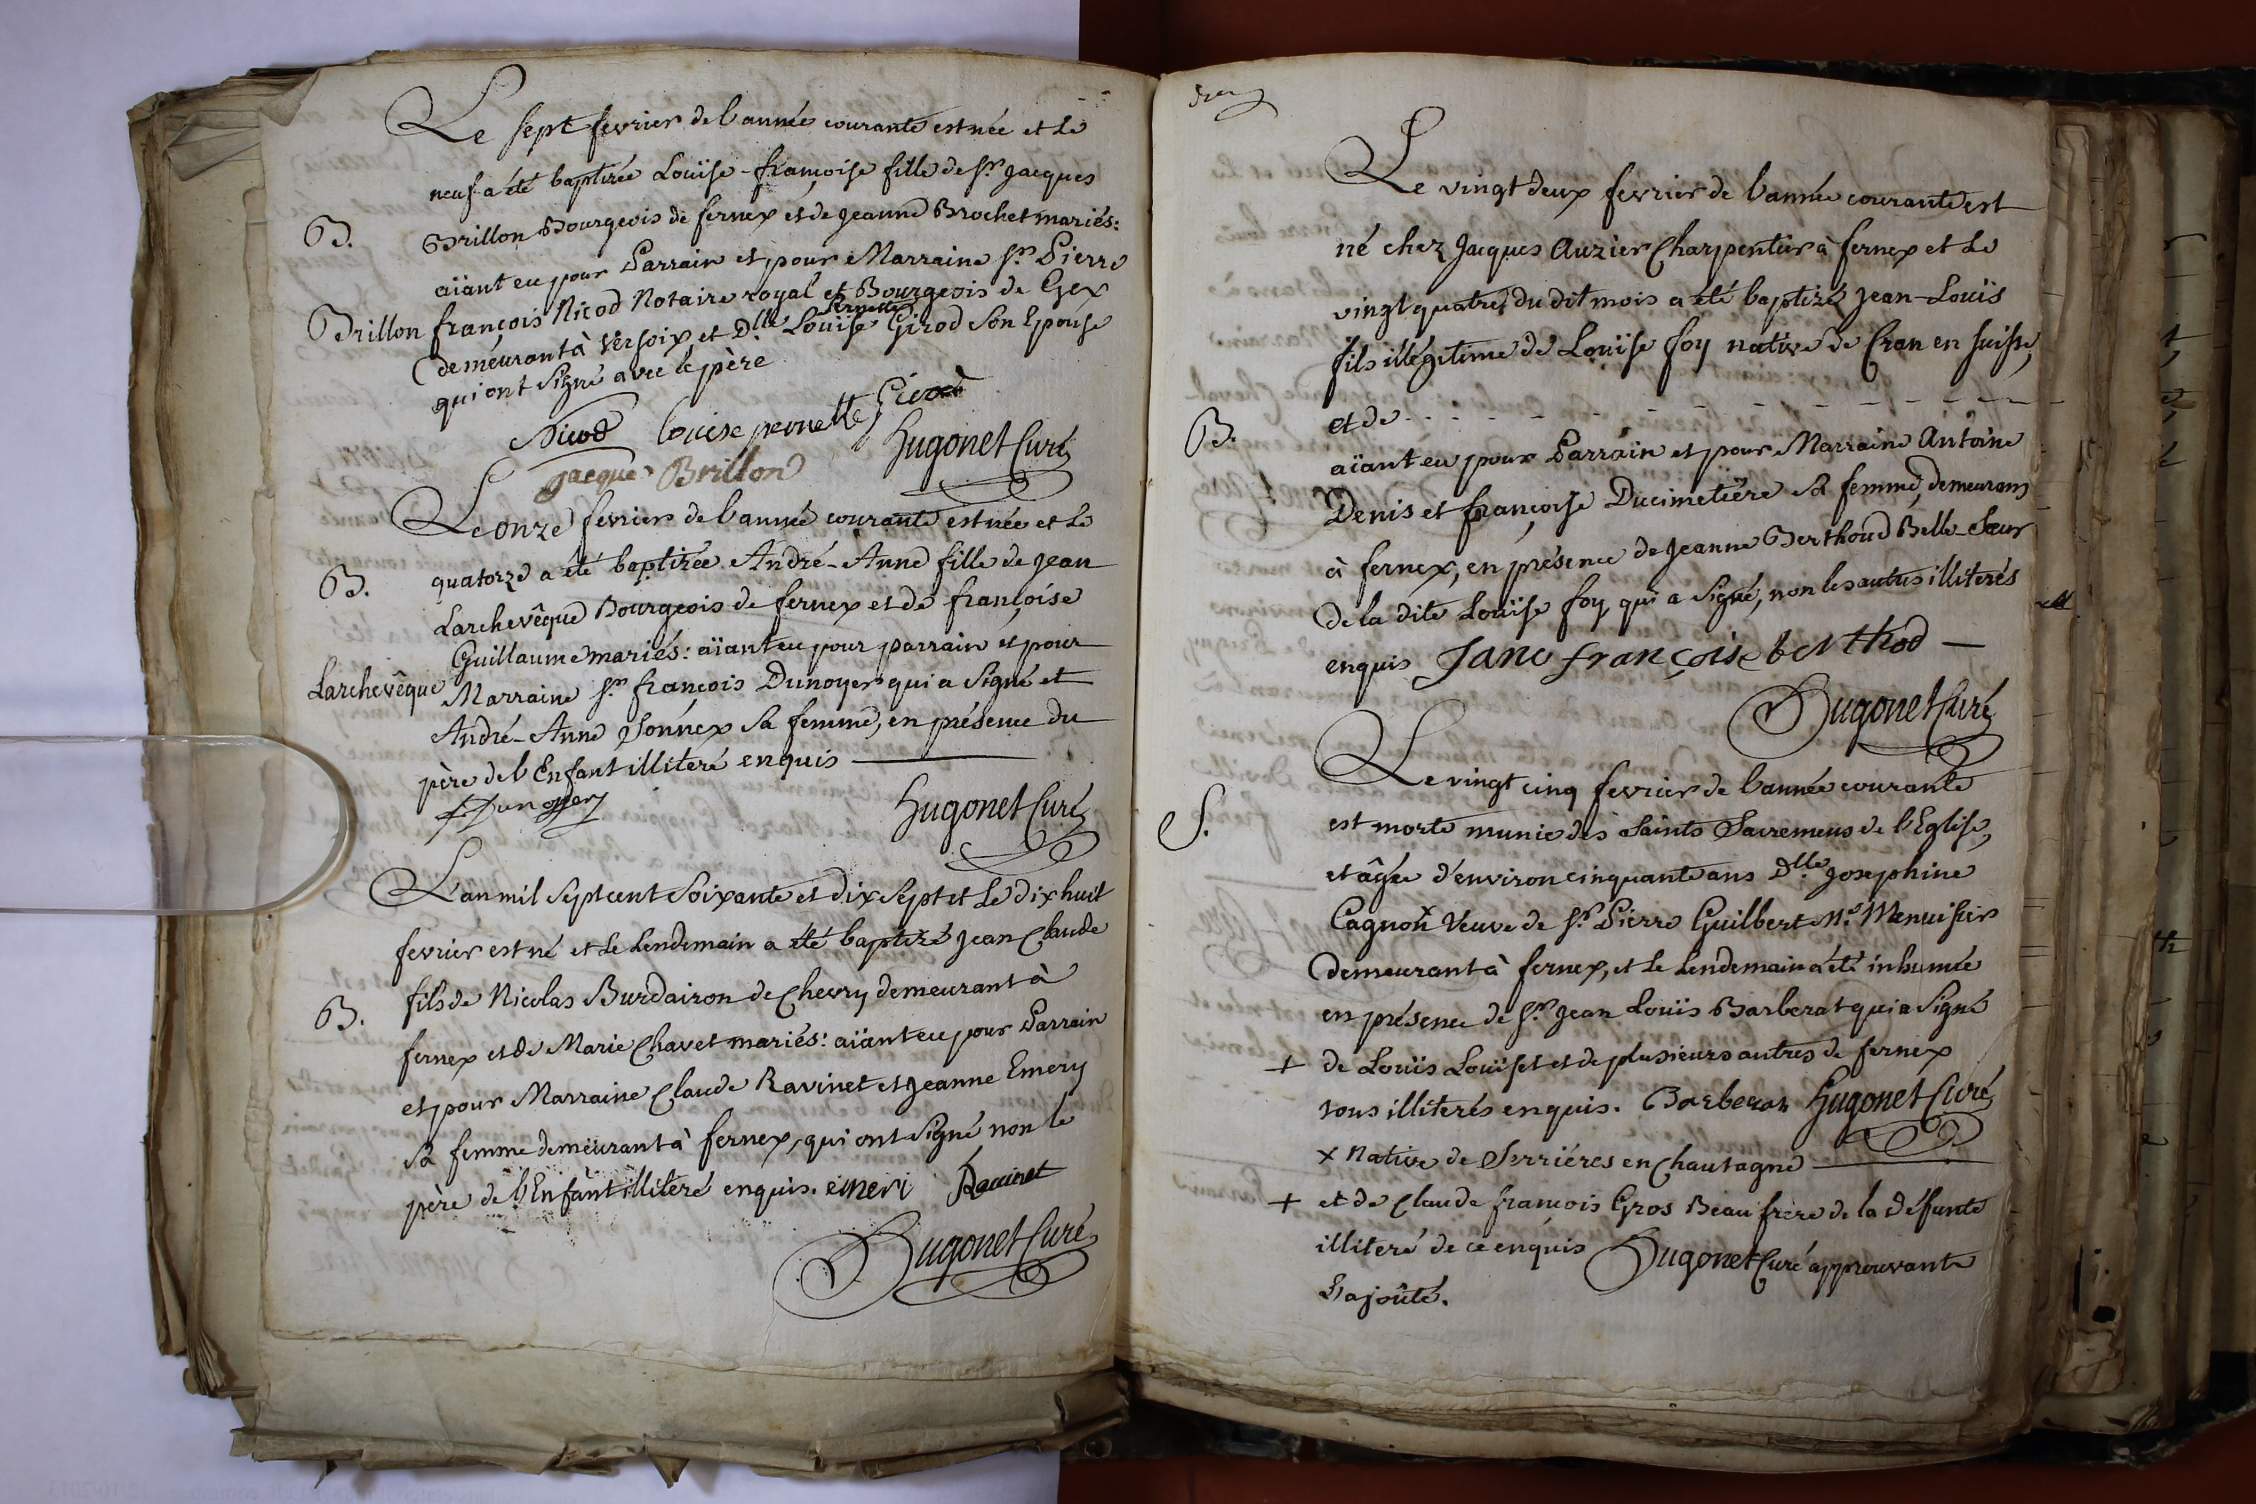 Le sept fevrier de l'année courante est née et le
neuf a été baptizée Louïse-françoise fille de Sr. Jacques
B. Brillon Bourgeois de fernex et de Jeanne Brochet mariés:
aïant eu pour Parrain et pour Marraine Sr. Pierre
Brillon françois Nicod Notaire royal et Bourgeois de Gex
demeurant à Versoix, et Dlle. Louïse Pernette Girod son Epouse
qui ont signé avec le père
Nicod Louise pernette Girod
Hugonet Curé
Jacque Brillon
Le onze fevrier de l'année courante est née et le
B. quatorze a été baptizée André-Anne fille de Jean
Larchevêque Bourgeois de fernex et de françoise
Guillaume mariés: aïant eu pour parrain et pour
Larchevêque Marraine Sr. françois Dunoyer qui a signé et
André-Anne Sonnex sa femme, en présence du
père de l'Enfant illiteré enquis
f. Dunoyer
Hugonet Curé
L'an mil sept cent soixante et dix sept et le dix huit
fevrier est né et le lendemain a été baptizé Jean Claude
B. fils de Nicolas Burdairon de Chevry demeurant à
fernex et de Marie Chavet mariés: aïant eu pour Parrain
et pour Marraine Claude Ravinet et Jeanne Emery
sa femme demeurant à fernex, qui ont signé non le
père de l'Enfant illiteré enquis. emeri Ravinet
Hugonet Curé
Le vingt deux fevrier de l'année courante est
né chez Jacques Auzier Charpentier à fernex et le
vingt quatre du dit mois a été baptizé Jean-Louïs
fils illégitime de Louïse foy native de Cran en suisse,
et de
B. aïant eu pour Parrain et pour Marraine Antoine
Denis et françoise Ducimetière sa femme, demeurans
à fernex, en présence de Jeanne Berthoud Belle-Soeur
de la dite Louïse foy, qui a signé, non les autres illiterés
enquis Jane françoise bethod
Hugonet Curé
Le vingt cinq fevrier de l'année courante
S. est morte munie des Saints Sacremens de l'Eglise,
et âgée d'environ cinquante ans Dlle. Josephine
Cagnon x Veuve de Sr. Pierre Guilbert Me. Menuisier
demeurant à fernex, et le lendemain a été inhumée
en présence de Sr. Jean Louïs Barberat qui a signé
+ de Louïs Louïset et de plusieurs autres de fernex
tous illiterés enquis. Barberat Hugonet Curé
x Native de Serriéres en Chautagne
+ et de Claude françois Gros Beau frère de la défunte
illiteré de ce enquis Hugonet Curé approuvant
l'ajoûté.